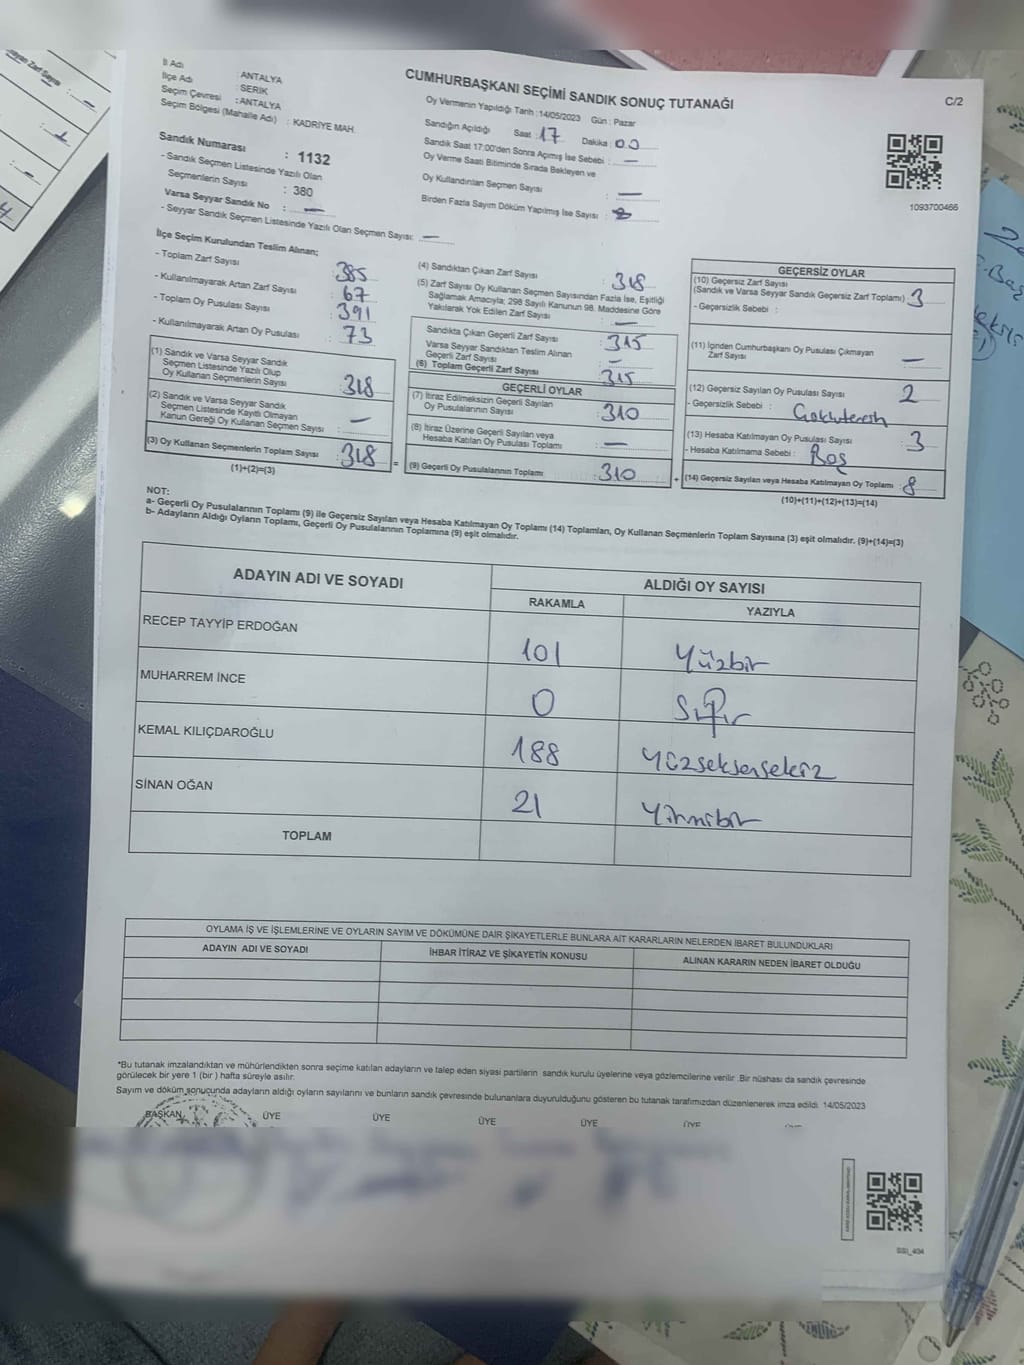 CUMHURBAŞKANI SEÇİMİ SANDIK SONUÇ TUTANAĞI
C/2
İl Adı : ANTALYA
İlçe Adı : SERİK
Seçim Çevresi : ANTALYA
Seçim Bölgesi (Mahalle Adı) : KADRİYE MAH.
Sandık Numarası : 1132
- Sandık Seçmen Listesinde Yazılı Olan
Seçmenlerin Sayısı : 380
Varsa Seyyar Sandık No : —
- Seyyar Sandık Seçmen Listesinde Yazılı Olan Seçmen Sayısı: —
Oy Vermenin Yapıldığı Tarih :14/05/2023 Gün : Pazar
Sandığın Açıldığı Saat : 17 Dakika : 00
Sandık Saat 17:00'den Sonra Açımış İse Sebebi : —
Oy Verme Saati Bitiminde Sırada Bekleyen ve
Oy Kullandırılan Seçmen Sayısı : —
Birden Fazla Sayım Döküm Yapılmış İse Sayısı :
1093700466
İlçe Seçim Kurulundan Teslim Alınan;
- Toplam Zarf Sayısı : 385
- Kullanılmayarak Artan Zarf Sayısı : 67
- Toplam Oy Pusulası Sayısı : 391
- Kullanılmayarak Artan Oy Pusulası : 73
(1) Sandık ve Varsa Seyyar Sandık
Seçmen Listesinde Yazılı Olup
Oy Kullanan Seçmenlerin Sayısı : 318
(2) Sandık ve Varsa Seyyar Sandık
Seçmen Listesinde Kayıtlı Olmayan
Kanun Gereği Oy Kullanan Seçmen Sayısı : —
(3) Oy Kullanan Seçmenlerin Toplam Sayısı : 318 =
(1)+(2)=(3)
(4) Sandıktan Çıkan Zarf Sayısı : 318
(5) Zarf Sayısı Oy Kullanan Seçmen Sayısından Fazla İse, Eşitliği
Sağlamak Amacıyla; 298 Sayılı Kanunun 98. Maddesine Göre
Yakılarak Yok Edilen Zarf Sayısı : —
Sandıkta Çıkan Geçerli Zarf Sayısı : 315
Varsa Seyyar Sandıktan Teslim Alınan
Geçerli Zarf Sayısı : —
(6) Toplam Geçerli Zarf Sayısı : 315
GEÇERLİ OYLAR
(7) İtiraz Edilmeksizin Geçerli Sayılan
Oy Pusulalarının Sayısı : 310
(8) İtiraz Üzerine Geçerli Sayılan veya
Hesaba Katılan Oy Pusulası Toplamı : —
(9) Geçerli Oy Pusulalarının Toplamı : 310 +
GEÇERSİZ OYLAR
(10) Geçersiz Zarf Sayısı
(Sandık ve Varsa Seyyar Sandık Geçersiz Zarf Toplamı) : 3
- Geçersizlik Sebebi :
(11) İçinden Cumhurbaşkanı Oy Pusulası Çıkmayan
Zarf Sayısı : —
(12) Geçersiz Sayılan Oy Pusulası Sayısı : 2
- Geçersizlik Sebebi :
(13) Hesaba Katılmayan Oy Pusulası Sayısı : 3
- Hesaba Katılmama Sebebi : Boş
(14) Geçersiz Sayılan veya Hesaba Katılmayan Oy Toplamı : 8
(10)+(11)+(12)+(13)=(14)
NOT:
a- Geçerli Oy Pusulalarının Toplamı (9) ile Geçersiz Sayılan veya Hesaba Katılmayan Oy Toplamı (14) Toplamları, Oy Kullanan Seçmenlerin Toplam Sayısına (3) eşit olmalıdır. (9)+(14)=(3)
b- Adayların Aldığı Oyların Toplamı, Geçerli Oy Pusulalarının Toplamına (9) eşit olmalıdır.
ADAYIN ADI VE SOYADI ALDIĞI OY SAYISI
RAKAMLA YAZIYLA
RECEP TAYYİP ERDOĞAN 101 Yüzbir
MUHARREM İNCE 0 Sıfır
KEMAL KILIÇDAROĞLU 188 Yüzseksensekiz
SİNAN OĞAN 21 Yirmibir
TOPLAM
OYLAMA İŞ VE İŞLEMLERİNE VE OYLARIN SAYIM VE DÖKÜMÜNE DAİR ŞİKAYETLERLE BUNLARA AİT KARARLARIN NELERDEN İBARET BULUNDUKLARI
ADAYIN ADI VE SOYADI İHBAR İTİRAZ VE ŞİKAYETİN KONUSU ALINAN KARARIN NEDEN İBARET OLDUĞU
*Bu tutanak imzalandıktan ve mühürlendikten sonra seçime katılan adayların ve talep eden siyasi partilerin sandık kurulu üyelerine veya gözlemcilerine verilir .Bir nüshası da sandık çevresinde
görülecek bir yere 1 (bir ) hafta süreyle asılır.
Sayım ve döküm sonucunda adayların aldığı oyların sayılarını ve bunların sandık çevresinde bulunanlara duyurulduğunu gösteren bu tutanak tarafımızdan düzenlenerek imza edildi. 14/05/2023
BAŞKAN ÜYE ÜYE ÜYE ÜYE ÜYE